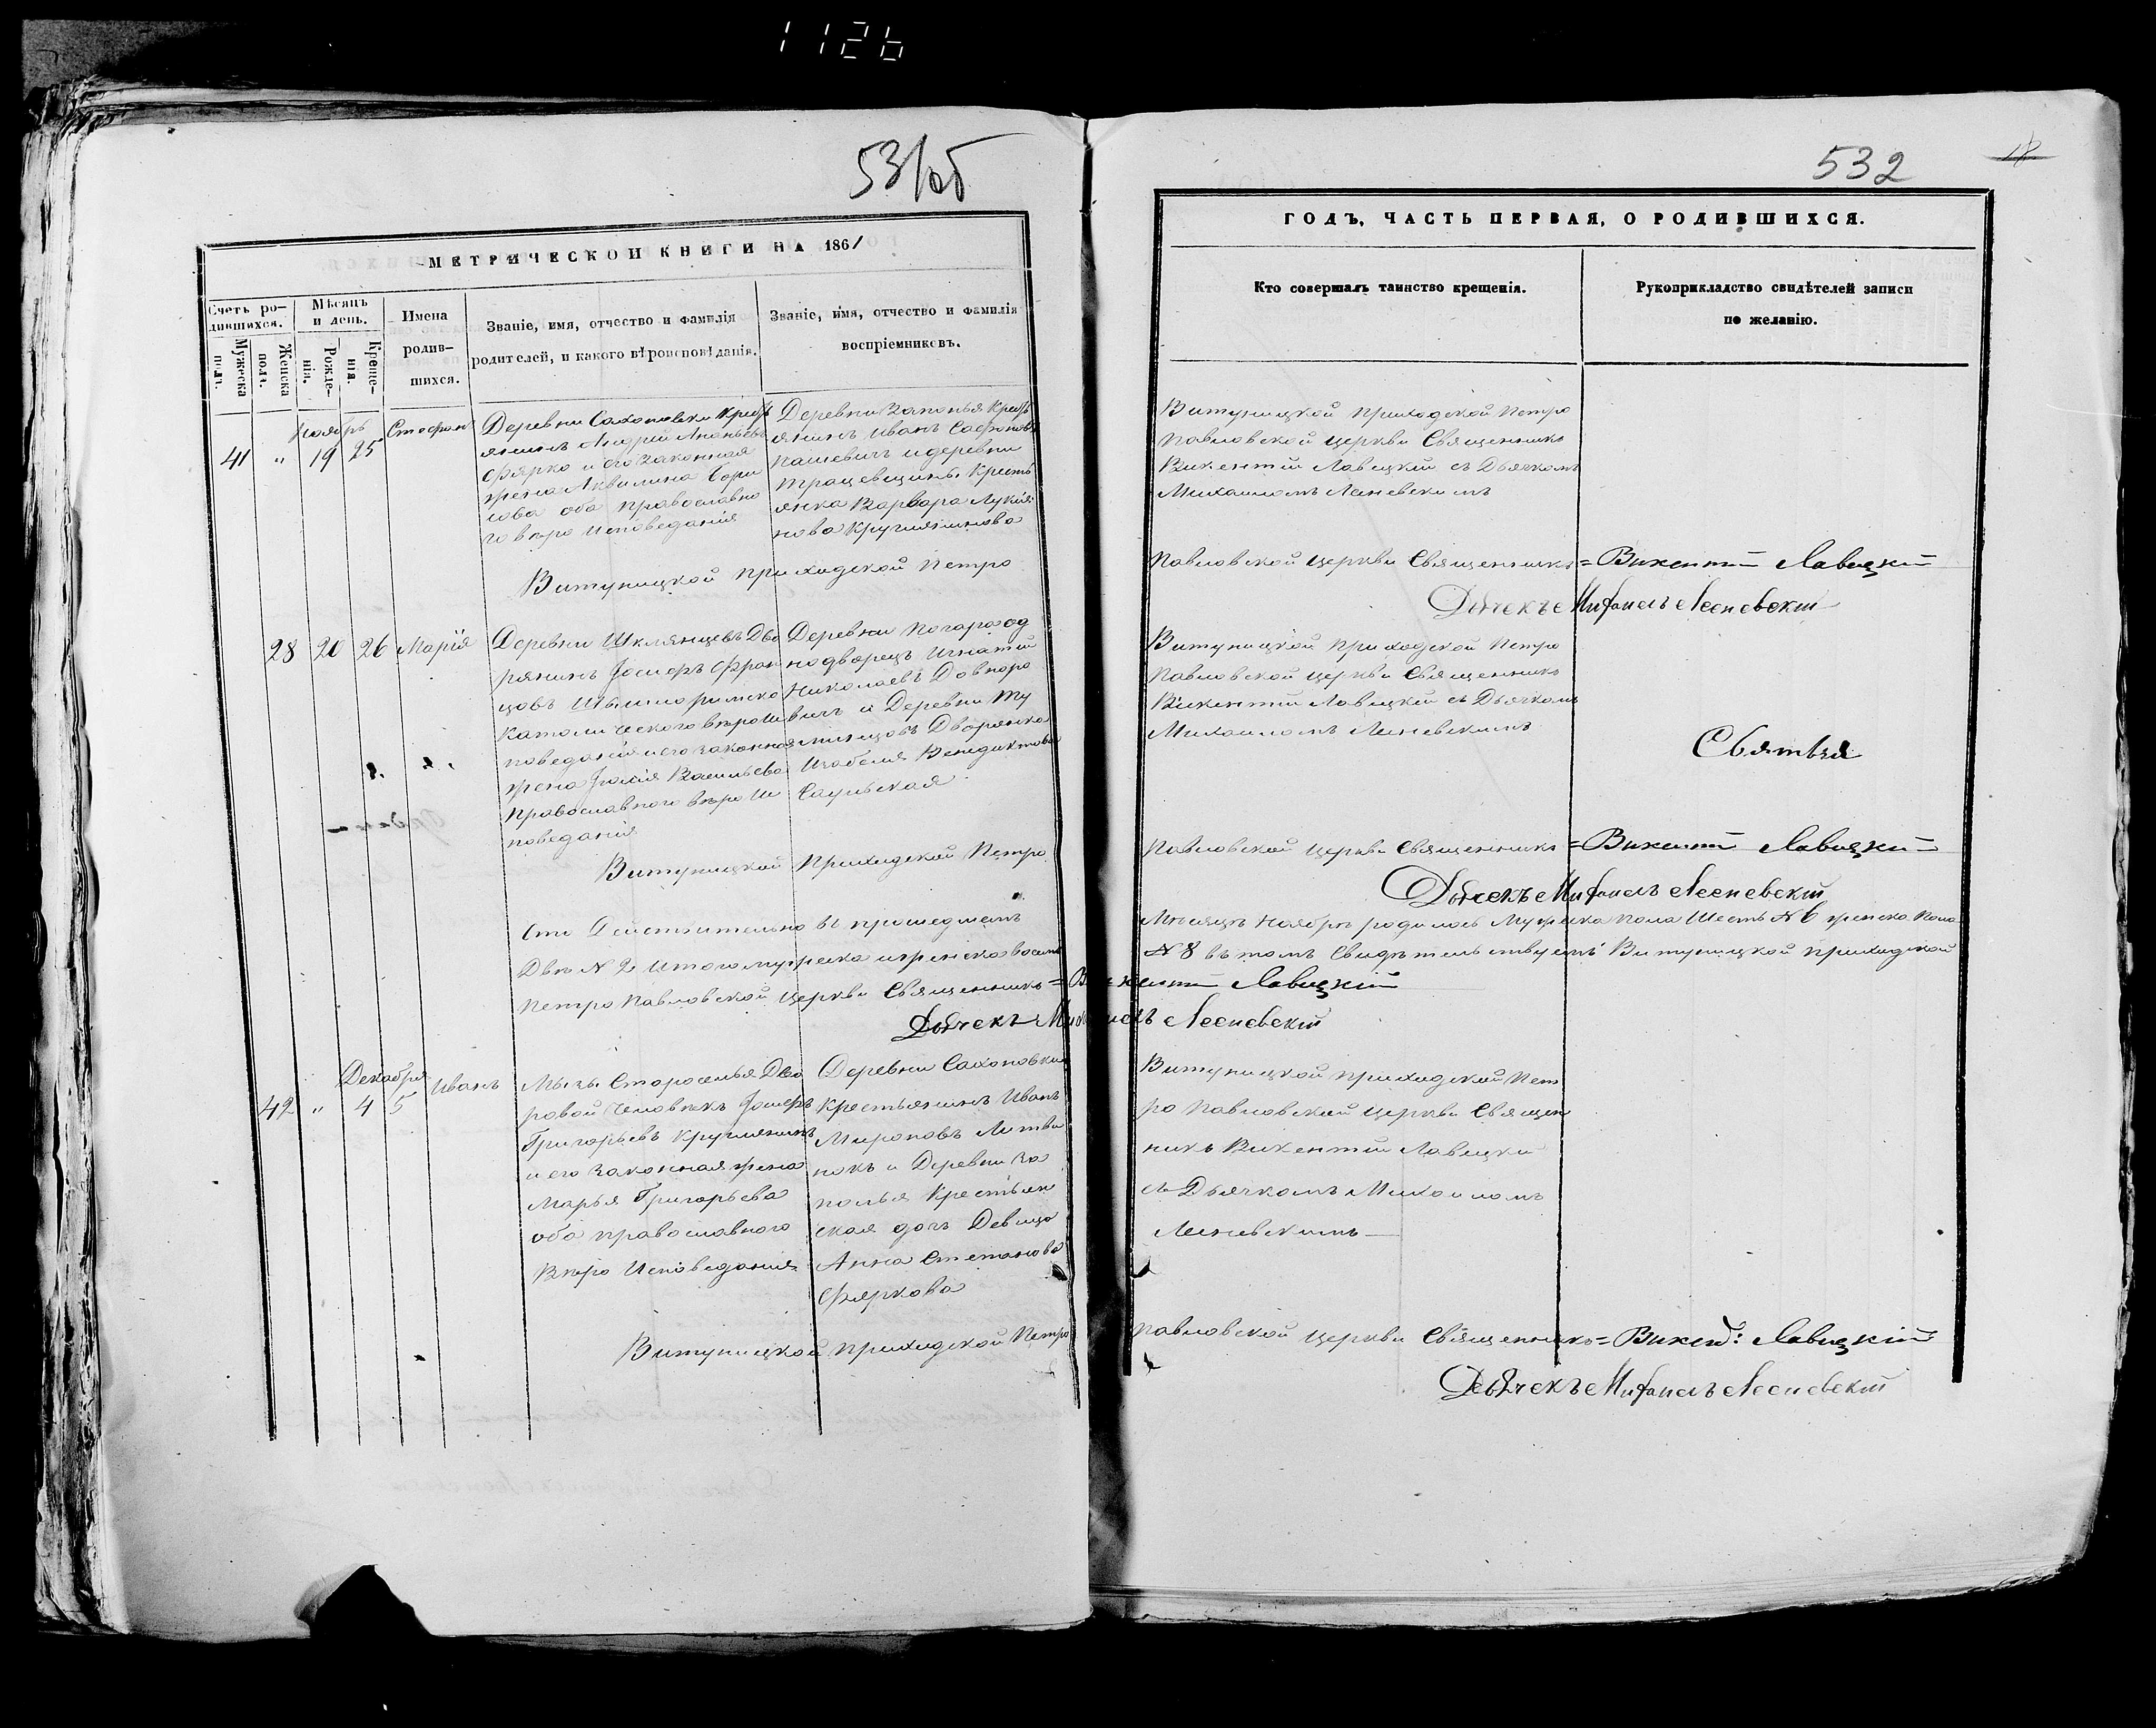 1126
531об
МЕТРИЧЕСКОЙ КНИГИ НА 1861
Счетъ ро-
дившихся.
Мужеска
полъ.
Женска
полъ.
Мѣсяцъ
и день.
Рожде-
нія.
Креще-
нія.
Имена
родив-
шихся.
Званіе, имя, отчество и фамилія
родителей, и какого вѣроисповѣданія.
Званіе, имя, отчество и фамилія
воспріемниковъ.
Ноябрь
41 " 19 25
Стефанъ
Деревни Сахоновки Кресть
янинъ Андрей Ананьевъ
Фярко и его законная
жена Аквилина
лова оба православно
го вѣро исповеданія
Деревни Заполья Кресть
янинъ Иванъ
Пашевичъ и деревни
Крестъ
янка Варвара Лукія
нова Круглянинова
Витуницкой приходской Петро
28 20 26 Марія
Деревни Шклянцевъ Дво
рянинъ Іосифъ Фран
цовъ римско
католическаго вѣро Ис
поведанія и его законная
жена Васильева
православнаго вѣро Ис
поведанія
Деревни Погара од
нодворецъ Игнатій
Николаевъ Довпоро
вичъ и Деревни Ту
Дворянка
Изабеля Венедиктова
Саульская
Витуницкой Приходской Петро
Что Действительно въ прошедшемъ
Двѣ N 2 Итого мужеска и женска восемь
Петро Павловской церкви Священникъ = Викентій Лавицкій
Дьячекъ Михаилъ Лесневскій
Декабря
42 " 4 5
Иванъ
Мызы Староселья Дво
ровой человѣкъ Іосифъ
Григорьевъ Круглянинъ
и его законная жена
Марья Григорьева
оба православнаго
Вѣро Исповеданія
Деревни Сахоновки
Крестьянинъ Иванъ
Мироновъ Литви
нокъ и Деревни За
полья Крестьян
ская дочь Девица
Анна Степанова
Фяркова
Витуницкой приходской Петро
532
ГОДЪ, ЧАСТЬ ПЕРВАЯ, О РОДИВШИХСЯ.
Кто совершалъ таинство крещенія.
Рукоприкладство свидѣтелей записи
по желанію.
Витуницкой приходской Петро
Павловской церкви Священникъ
Викентій Лавицкій съ Дьячкомъ
Михаиломъ Лесневскимъ
Павловской церкви Священникъ = Викентій Лавицкій
Дьячекъ Михаилъ Лесневскій
Витуницкой приходской Петро
Павловской церкви Священникъ
Викентій Лавицкій съ Дьячкомъ
Михаиломъ Лесневскимъ
Павловской церкви Священникъ = Викентій Лавицкій
Дьячекъ Михаилъ Лесневскій
Мѣсяцѣ Ноябрѣ родилось Мужеска пола Шесть N 6 женска пола
N 8 въ томъ Свидѣтельствуемъ Витуницкой приходской
Витуницкой приходской Пет
ро Павловской церкви Священ
никъ Викентій Лавицкій
съ Дьячкомъ Михаиломъ
Лесневскимъ
Павловской церкви Священникъ = Викент: Лавицкій
Дьячекъ Михаилъ Лесневскій